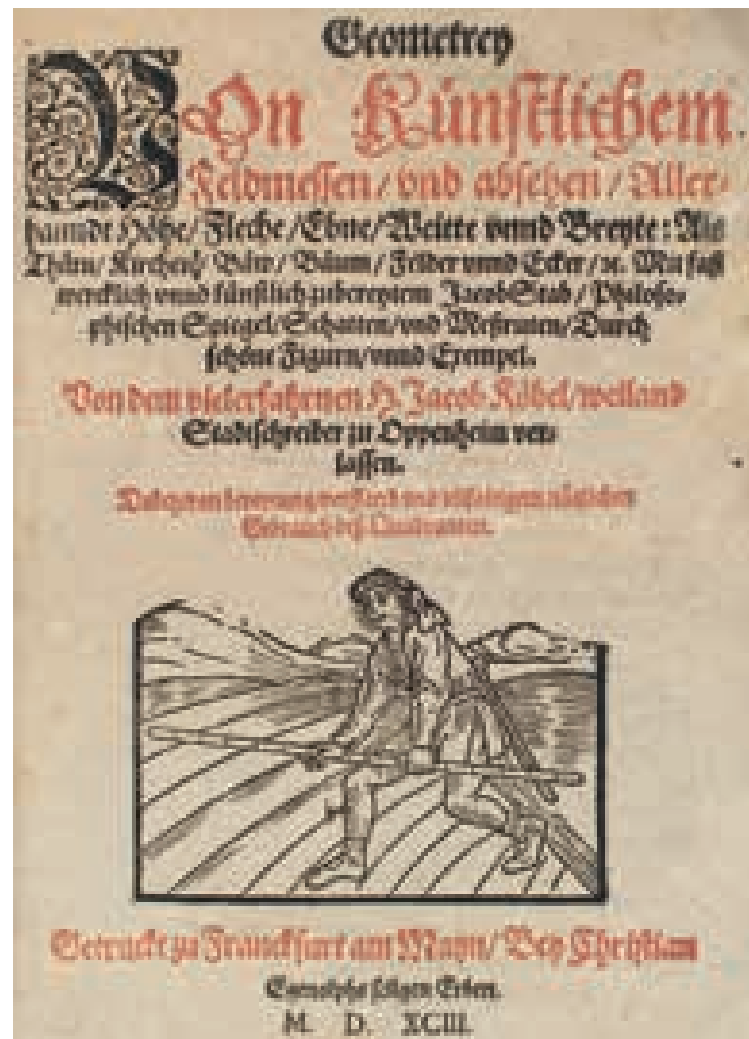 Geometrey
VOn Künstlichem
Feldmessen / vnd absehen / Aller-
handt Höhe / Fleche / Ebne / Weitte vnnd Breyte: Als
Thürn / Kirchen / Bäw / Bäum / Felder vnnd Ecker / ꝛc. Mit faß
wercklich vnnd künstlich zubereytem Jacob Stab / Philoso-
phischen Spiegel / Schatten / vnd Meßruten / Durch
schöne Figurn / vnnd Exempel.
Von dem vielerfahrenen H. Jacob Köbel / weiland
Stadtschreiber zu Oppenheim ver-
lassen.
vnd
Gebrauch deß Quadranten.
Getruckt zu Franckfurt am Mayn / Bey Christian
Egenolphs seligen Erben.
M. D. XCIII.